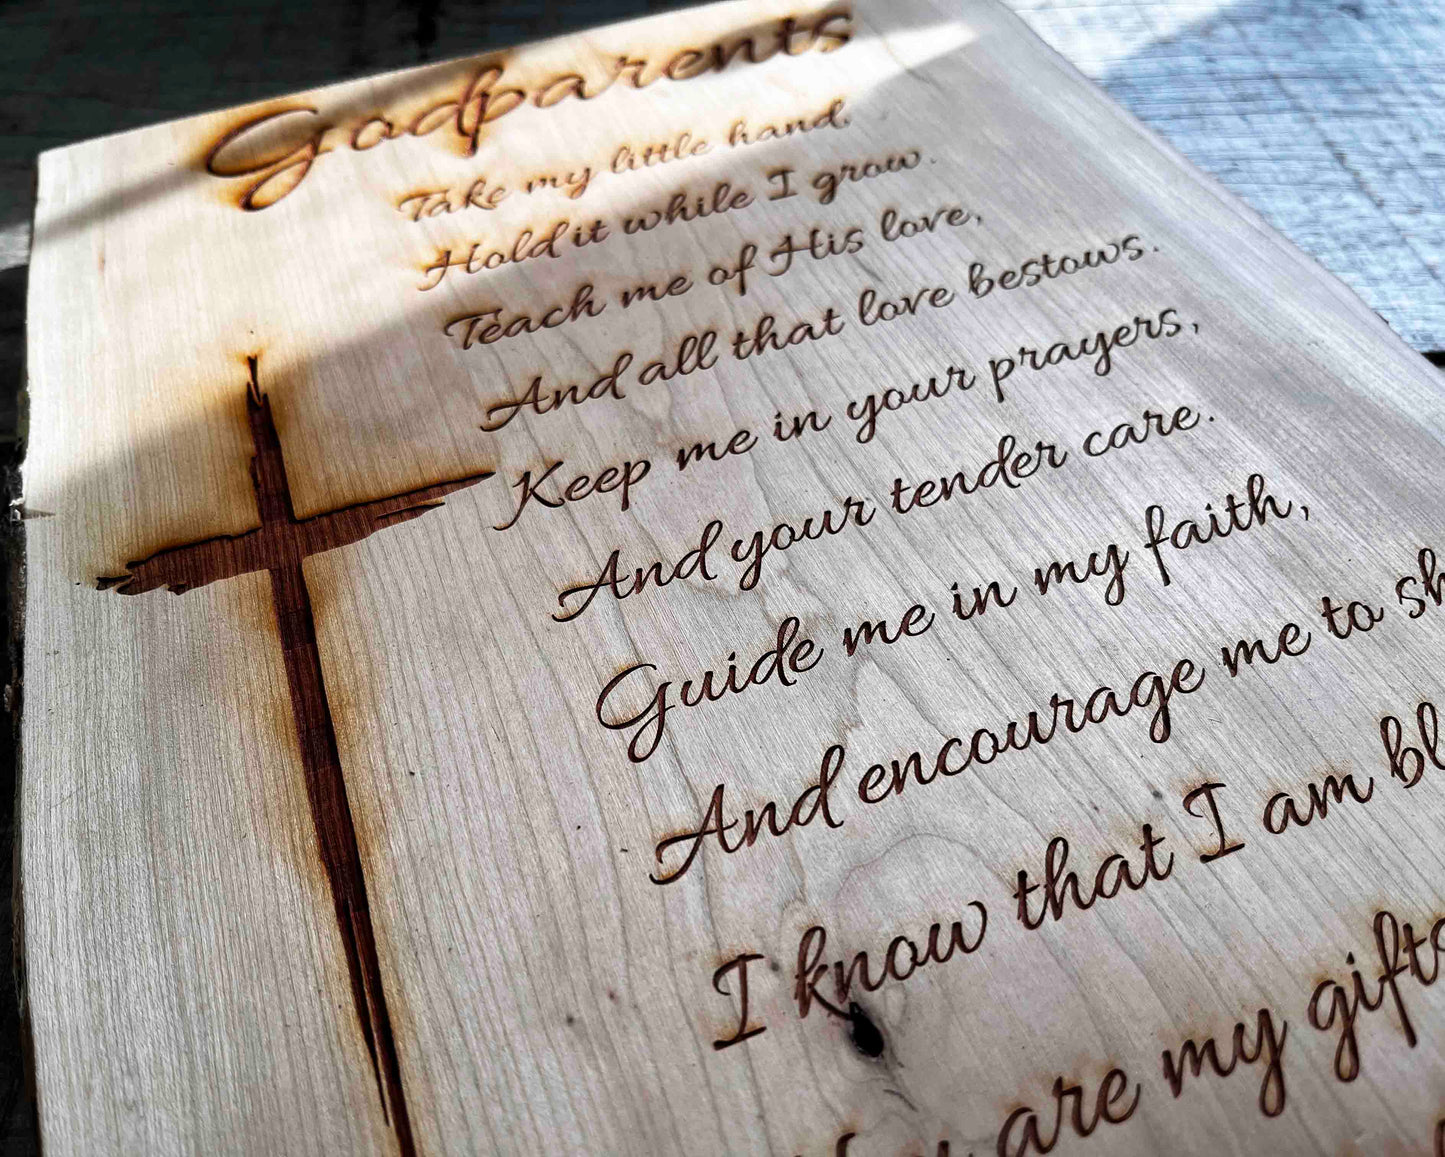 Godparents
Take my little hand,
Hold it while I grow.
Teach me of His love,
And all that love bestows.
Keep me in your prayers,
And your tender care.
Guide me in my faith,
And encourage me to sh
I know that I am bl
are my gifts